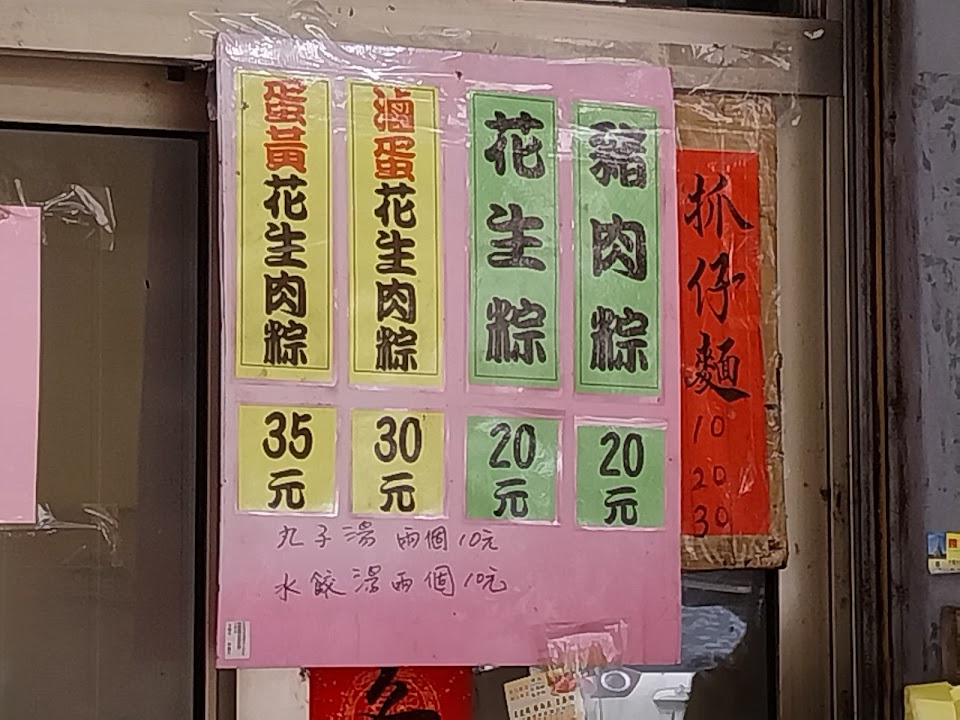 抓仔麵
10
20
30
豬肉粽
20元
花生粽
20元
滷蛋花生肉粽
30元
蛋黃花生肉粽
35元
丸子湯 兩個10元
水餃湯兩個10元